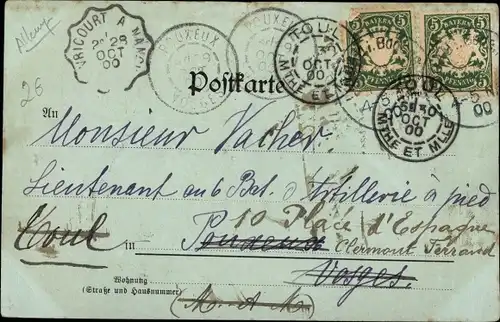 Allemag
26
AVRICOURT A NANCY
2E 28
OCT
00
POUXEUX
VOSGES
POUXEUX
TOUL
OCT
00
MTHE ET MLLE
BAYERN
5
PFENNIG
BAYERN
5
PFENNIG
TOUL
OCT
00
MTHE ET MLLE
4-5
00
Postkarte
An
Monsieur Vacher.
Lieutenant au 6 Bat. d'Artillerie à pied
Toul in Pouxeux 1° Place d'Espagne
Clermont Ferrand
Vosges.
Wohnung
(Straße und Hausnummer)
M. et M.